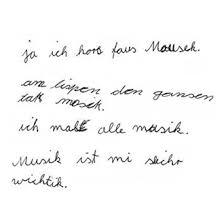 ja ich horo faus Mausek.
am lispen den gansen
tatt mosik.
ich malt alle musik.
Musik ist mi skihr
wichtik.